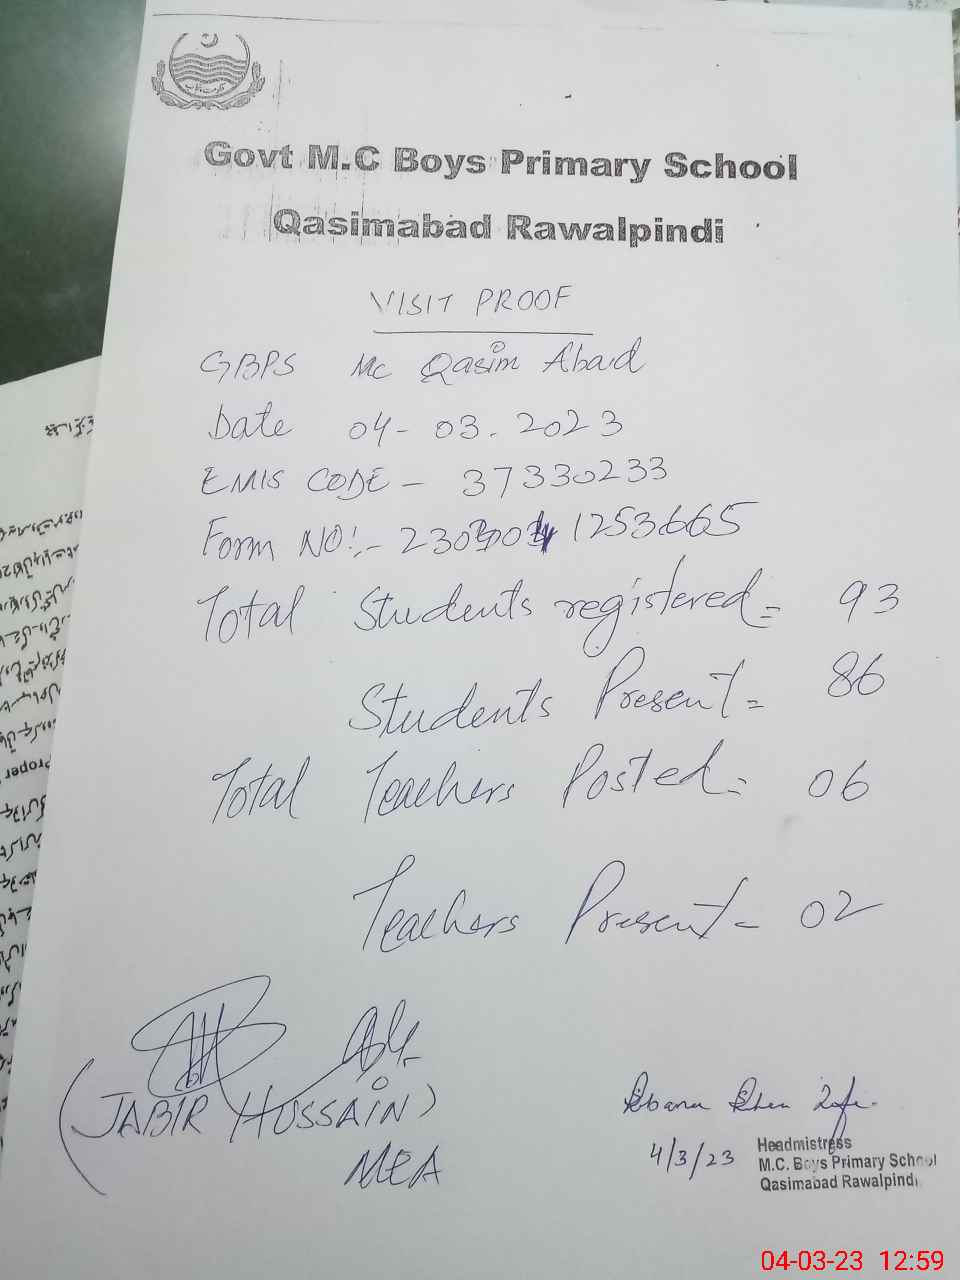 Govt M.C Boys Primary School
Qasimabad Rawalpindi
VISIT PROOF
GBPS Mc Qasim Abad
Date 04-03.2023
EMIS CODE - 37330233
Form NO:- 1253665
Total Students registered = 93
Students Present = 86
Total Teachers Posted = 06
Teachers Present = 02
(JABIR HUSSAIN)
MEA
4/3/23
Headmistress
M.C. Boys Primary School
Qasimabad Rawalpindi
Proper
04-03-23 12:59